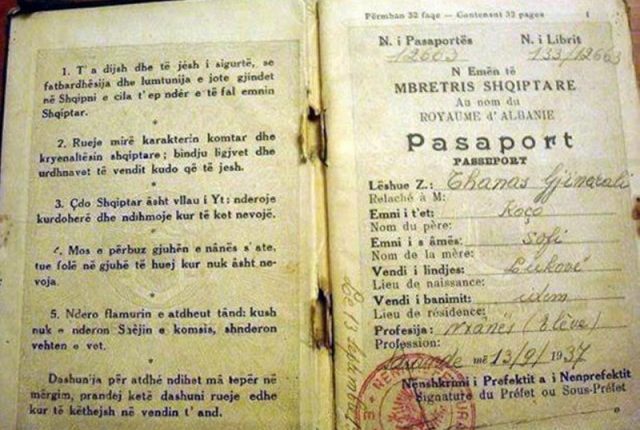 1. T' a dijsh dhe të jësh i sigurtë, se
fatbardhësija dhe lumtunija e jote gjindet
në Shqipni e cila t'ep ndër e të fal emnin
Shqiptar.
2. Rueje mirë karakterin komtar dhe
kryenaltësin shqiptare; bindju ligjvet dhe
urdhnavet të vendit kudo që të jesh.
3. Çdo Shqiptar âsht vllau i Yt: nderoje
kurdoherë dhe ndihmoje kur të ket nevojë.
4. Mos e përbuz gjuhën e nânës s'ate,
tue folë në gjuhë të huej kur nuk âsht ne-
voja.
5. Ndero flamurin e atdheut tând: kush
nuk e nderon Shêjin e komsis, shnderon
vehten e vet.
Dashunija për atdhé ndihet mâ tepër në
mërgim, prandej ketë dashuni rueje edhe
kur të këthejsh në vendin t'and.
Përmban 32 faqe — Contenant 32 pages 1
N. i Pasaportës N. i Librit
12663 133/12663
N Emën të
MBRETRIS SHQIPTARE
Au nom du
ROYAUME d'ALBANIE
Pasaport
PASSEPORT
Lëshue Z.: Thanas Gjinorali
Relaché à M:
Emni i t'et: Koço
Nom du père:
Emni i s âmës: Sofi
Nom de la mère:
Vendi i lindjes: Lukovë
Lieu de naissance:
Vendi i banimit: idem
Lieu de résidence:
Profesija: nxanës (Elève)
Profession:
Sarandë më 13/9/1937
Nënshkrimi i Prefektit a i Nenprefektit
Signature du Préfet ou Sous-Préfet